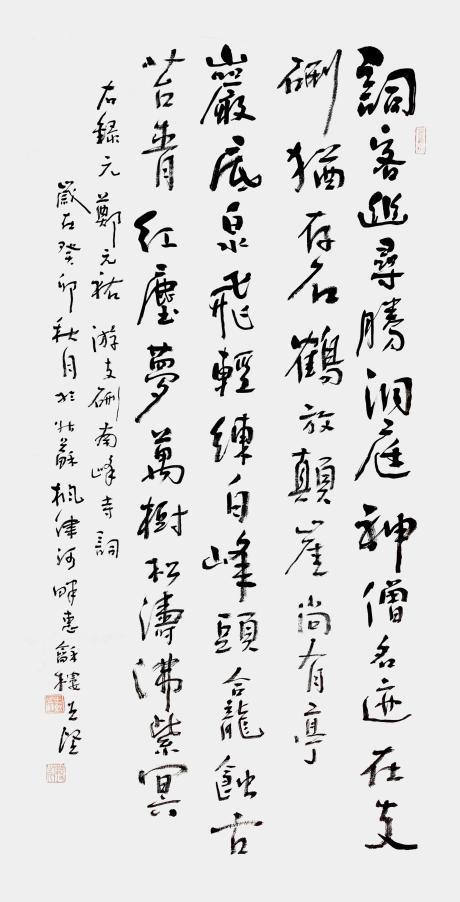 詞客追尋勝洞庭神僧名迹在支
硎猶存石鶴放顛崖尚有亭
巖底泉飛輕練白峰頭龕蝕古
苔青紅塵夢萬樹松濤沸紫冥
右錄元鄭元祐游支硎南峰寺詞
歲在癸卯秋月於姑蘇楓津河畔惠龢樓